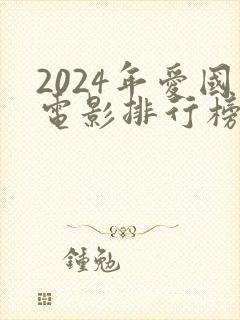 2024年愛國
電影排行榜
鍾勉